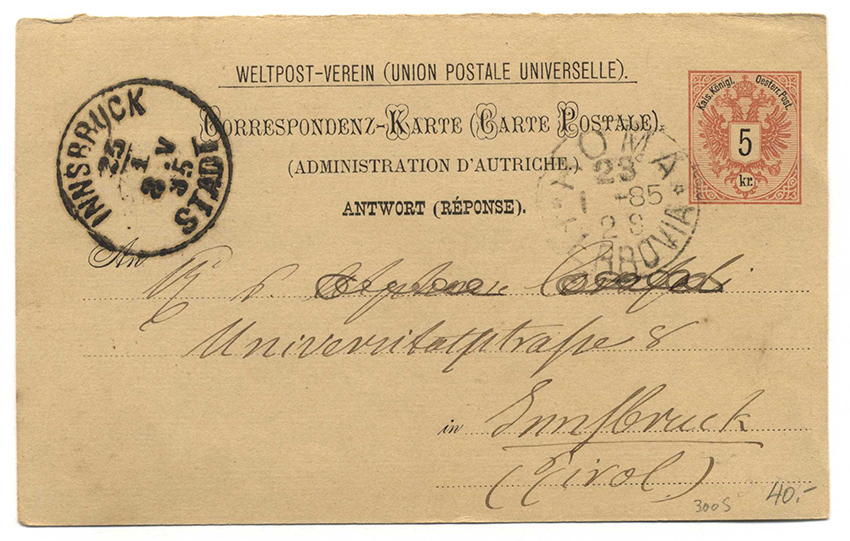 WELTPOST-VEREIN (UNION POSTALE UNIVERSELLE).
CORRESPONDENZ-KARTE (CARTE POSTALE).
(ADMINISTRATION D'AUTRICHE.)
ANTWORT (RÉPONSE).
Kais. Königl. Oesterr. Post.
5
kr.
INNSBRUCK
25
1
8 V
85
STADT
ROMA
23
1 -85
FERROVIA
An
Universitatsstrasse 8
in Innsbruck
(Tirol.)
300S 40.-